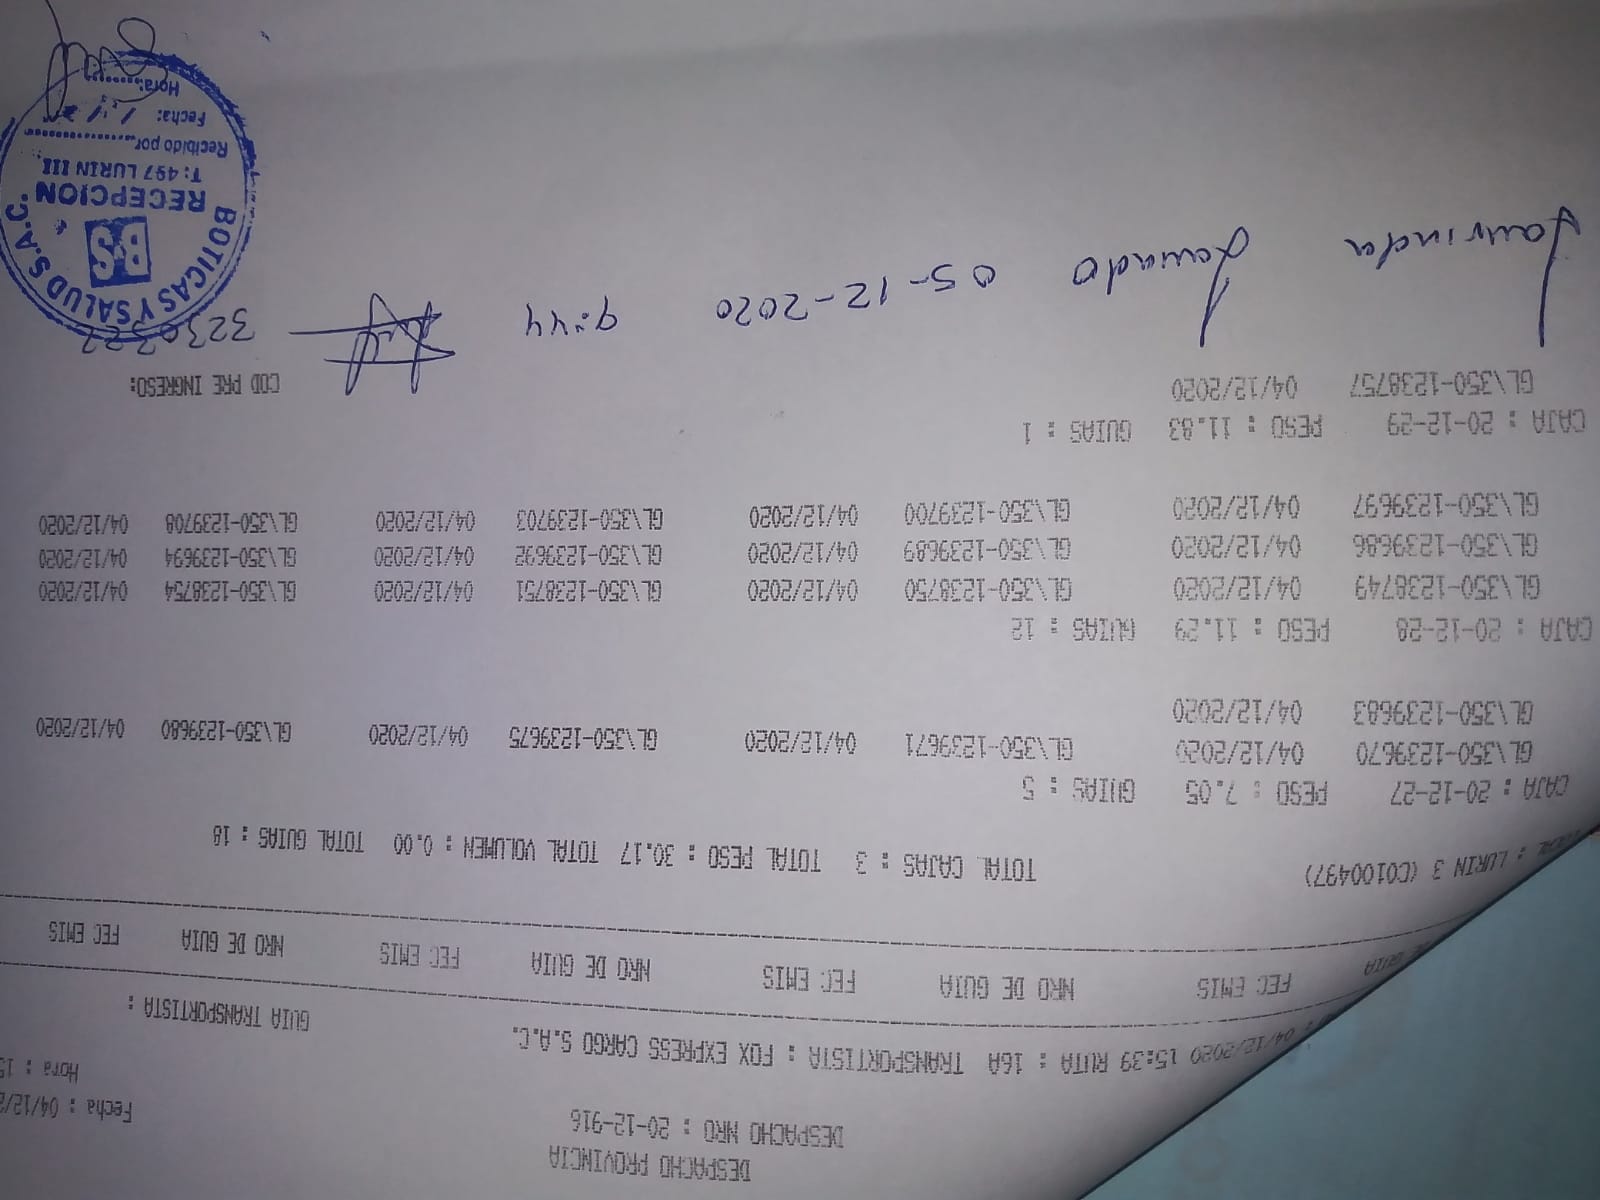 DESPACHO PROVINCIA
DESPACHO NRO : 20-12-916
Fecha : 04/12/2
Hora : 15
04/12/2020 15:39 RUTA : 16A TRANSPORTISTA : FOX EXPRESS CARGO S.A.C.
GUIA TRANSPORTISTA :
DE GUIA FEC EMIS NRO DE GUIA FEC EMIS NRO DE GUIA FEC EMIS NRO DE GUIA FEC EMIS
: LURIN 3 (C0100497) TOTAL CAJAS : 3 TOTAL PESO : 30.17 TOTAL VOLUMEN : 0.00 TOTAL GUIAS : 18
CAJA : 20-12-27 PESO : 7.05 GUIAS : 5
GL\350-1239670 04/12/2020 GL\350-1239671 04/12/2020 GL\350-1239675 04/12/2020 GL\350-1239680 04/12/2020
GL\350-1239683 04/12/2020
CAJA : 20-12-28 PESO : 11.29 GUIAS : 12
GL\350-1238749 04/12/2020 GL\350-1238750 04/12/2020 GL\350-1238751 04/12/2020 GL\350-1238754 04/12/2020
GL\350-1239686 04/12/2020 GL\350-1239689 04/12/2020 GL\350-1239692 04/12/2020 GL\350-1239694 04/12/2020
GL\350-1239697 04/12/2020 GL\350-1239700 04/12/2020 GL\350-1239703 04/12/2020 GL\350-1239708 04/12/2020
CAJA : 20-12-29 PESO : 11.83 GUIAS : 1
GL\350-1238757 04/12/2020
COD PRE INGRESO:
05-12-2020 9:44
BOTICAS Y SALUD S.A.C.
B·S
RECEPCION
T: 497 LURIN III
Recibido por
Fecha:
Hora: